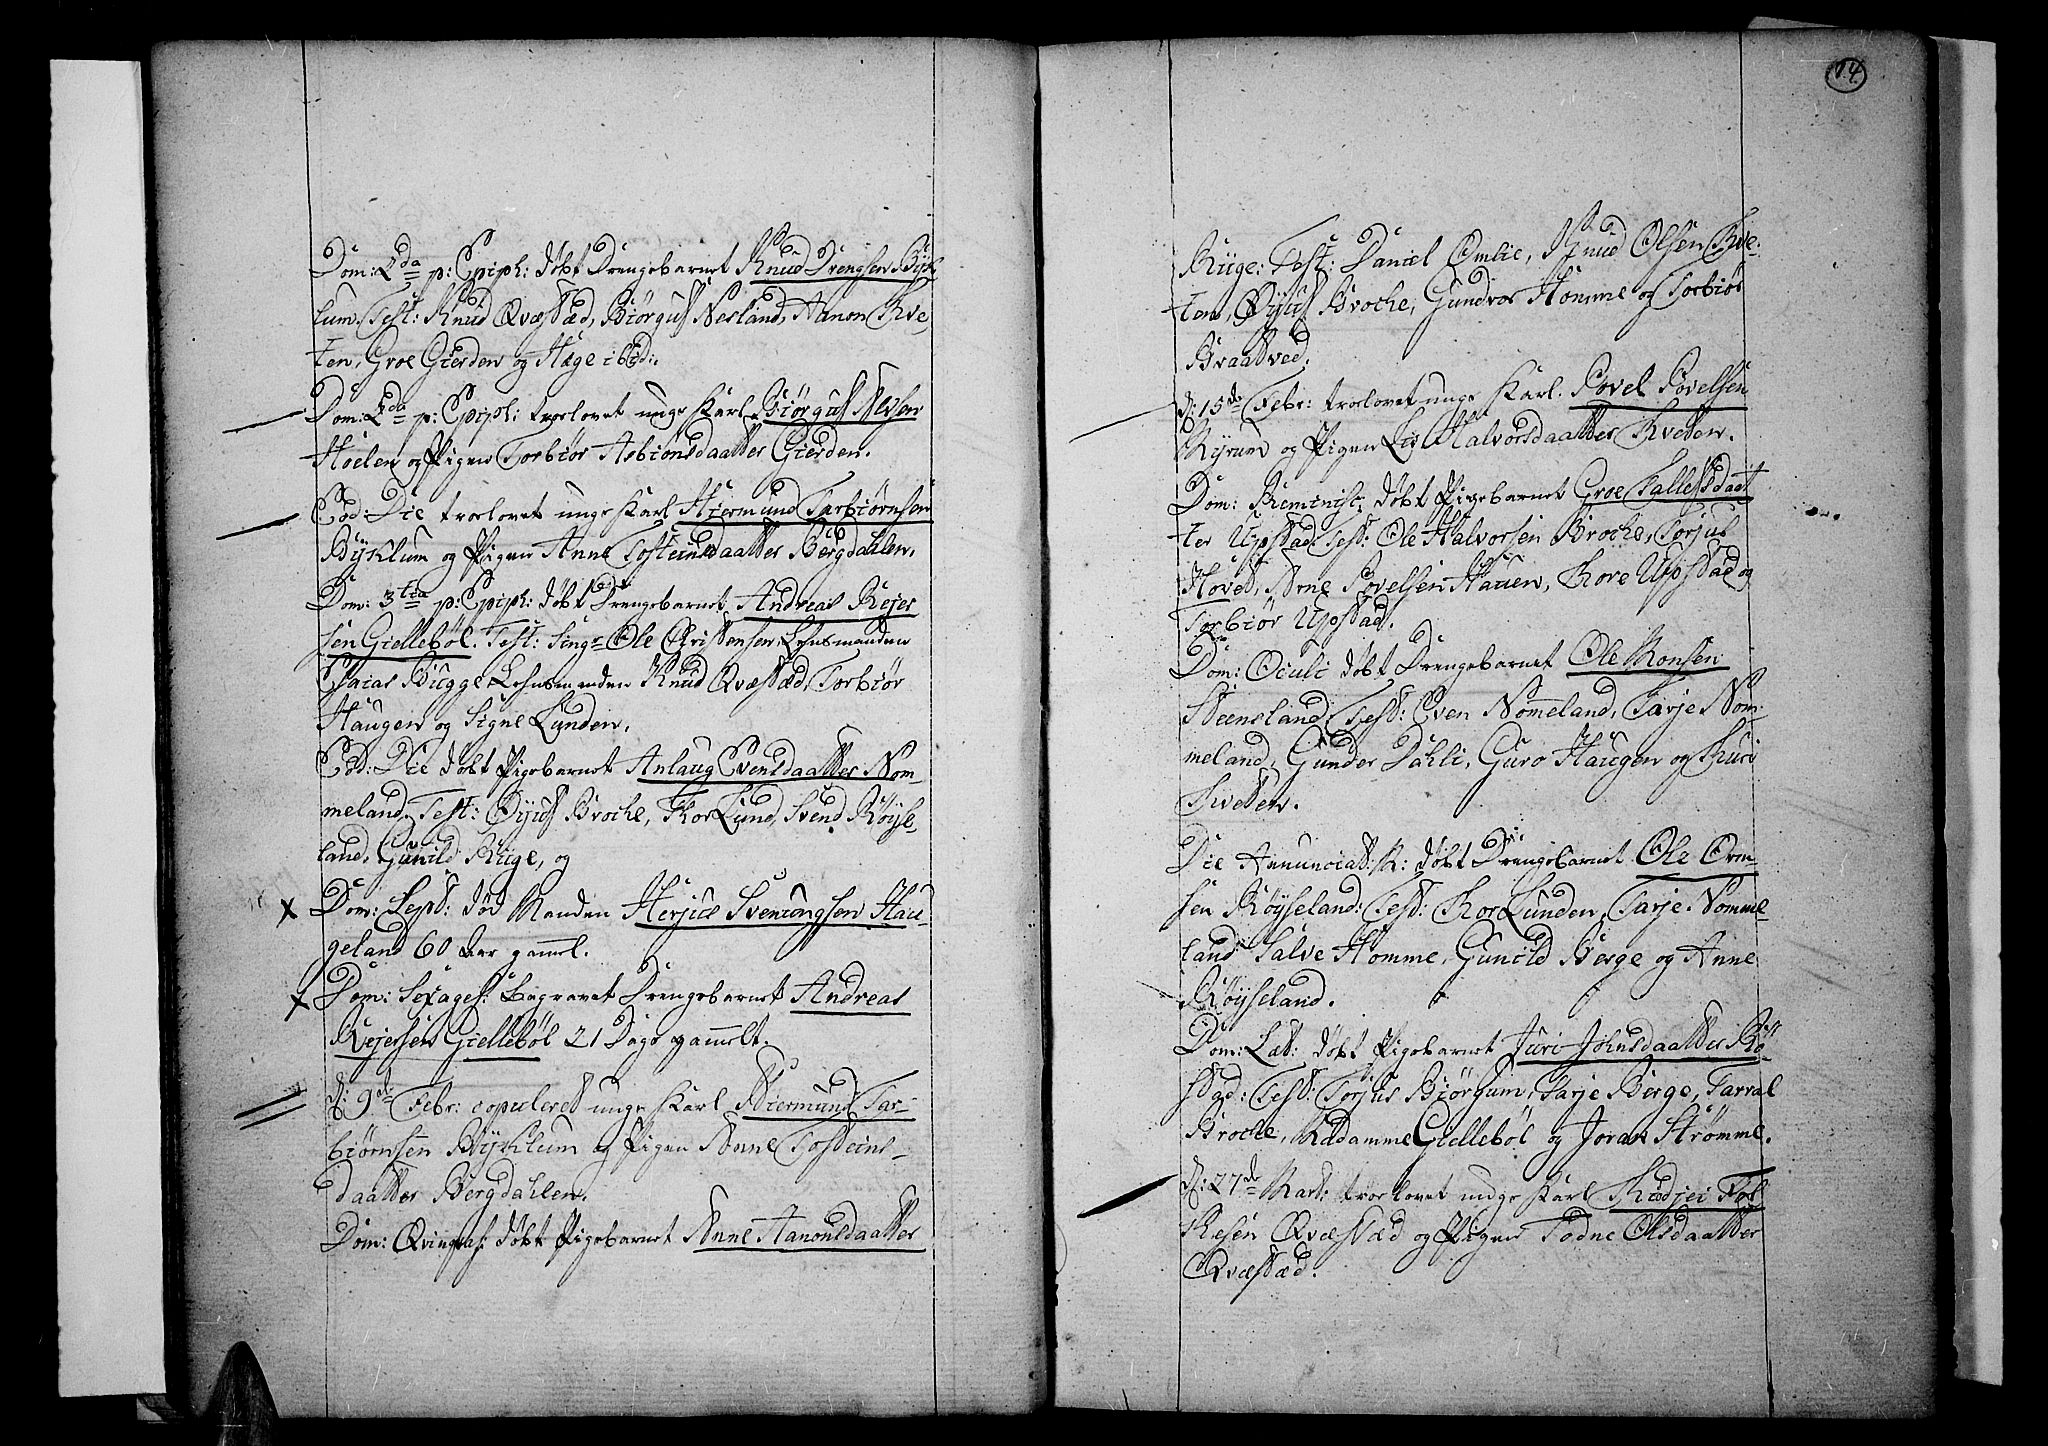 Dom: 2da p: Epiph: döbt Drengebarnet Knud Drengsen Byk
lum. Test: Knud Qvæstæd, Biörgulf Nesland, Aanon Kve
ten, Groe Gierden og Hæge ibid:
Dom: 2da p: Epiph: troelovet unge Karl Biörgulf Alfsen
Hoelen og Pigen Torbiör Asbiönsdaatter Gierden.
Eod: Die troelovet unge Karl Hiermund Tarbiörnsen
Byklum og Pigen Anne Tosteinsdaatter Bergdahlen.
Dom: 3tia p: Epiph: döbt Drengebarnet Andreas Rejer
sen Giellebøl. Test: Sing= Ole Christensen, Lehnsmanden
Esaias Bugge, Lehnsmanden Knud Qvæstæd, Torbiör
Haugen og Signe Lunden.
Eod: Die döbt Pigebarnet Anlaug Evensdaatter Nom-
meland. Test: Öyuf Broche, Thor Lund, Svend Röyse-
land, Gunild Rüge, og
Dom: Sept: död Manden Herjus Svenungsen Hau-
geland 60 Aar gammel.
Dom: Sexages: Begravet Drengebarnet Andreas
Rejersen Giellebøl 21 Dage gammelt.
D: 9de Febr: copuleret unge Karl Hiermund Tar-
biörnsen Byklum og Pigen Anne Tosteins-
daatter Bergdahlen.
Dom: Qvinqvas: döbt Pigebarnet Anne Aanonsdaatter
14
Rüge: Test: Daniel Omlie, Knud Olsen Kve-
ten, Öyuf Broche, Gundvor Homme og Torbiör
Braatved.
D: 15de Febr: troelovet unge Karl. Povel Povelsen
Ryrum og Pigen Liv Halvorsdaatter Kveten.
Dom: Reminisc: döbt Pigebarnet Groe Tallefsdaat
ter Upstad. Test: Ole Halvorsen Broche, Torjus
Hovet, Arne Povelsen Hauen, Thore Upstad og
Torbiör Upstad.
Dom: Oculi döbt Drengebarnet Ole Monsen
Steensland. Test: Even Nommeland, Tarje Nom-
meland, Gunder Dahli, Guro Haugen og Thuri
Sveten.
Die Annunciat: M: döbt Drengebarnet Ole Orm
sen Röyseland: Test: Thor Lunden, Tarje Nomme-
land Salve Homme, Gunild Berge og Anne
Röyseland.
Dom: Læt: döbt Pigebarnet Juri Johnsdaatter Rö-
stgd: Test: Torjus Biörgum, Tarje Berge, Tarral
Broche, Madamme Giellebøl og Joran Strömme.
D: 27de Mart: troelovet unge Karl Thodjei Fol
Qvæstæd og Pigen Todne Olsdaatter
Qvæstæd.